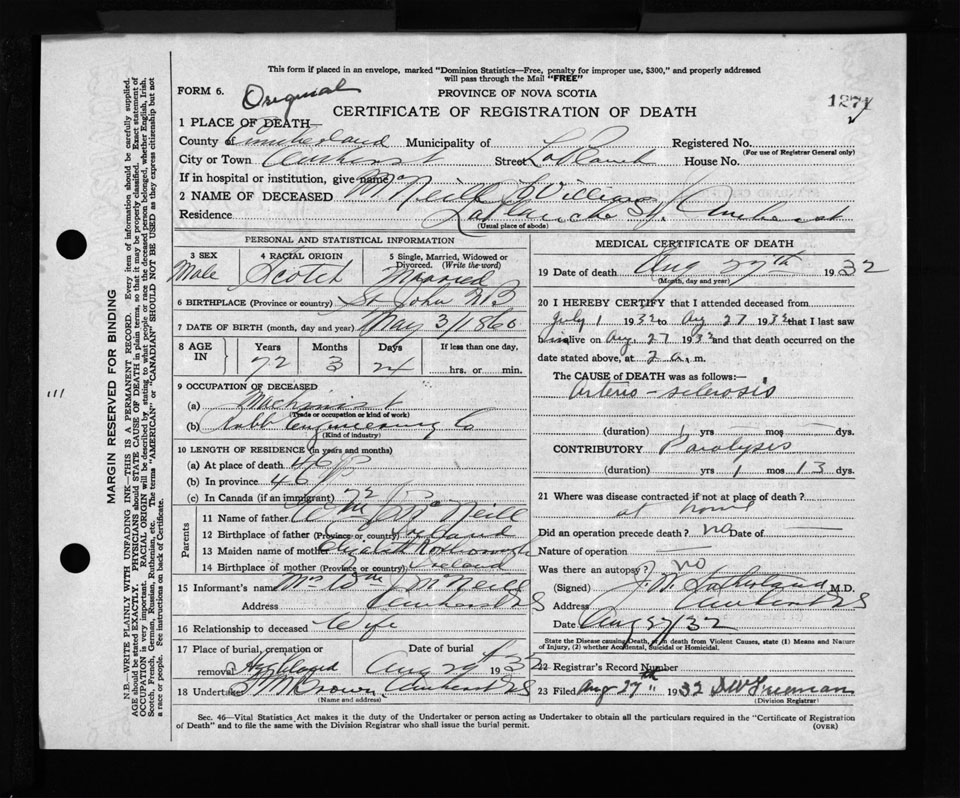 This form if placed in an envelope, marked "Dominion Statistics—Free, penalty for improper use, $300," and properly addressed
will pass through the Mail "FREE"
FORM 6. Original PROVINCE OF NOVA SCOTIA
CERTIFICATE OF REGISTRATION OF DEATH 1271
1 PLACE OF DEATH—
County of Cumberland Municipality of Registered No.
(For use of Registrar General only)
City or Town Amherst Street LaPlanch House No.
If in hospital or institution, give name
2 NAME OF DECEASED McNeill William J.
Residence LaPlanche St. Amherst
(Usual place of abode)
PERSONAL AND STATISTICAL INFORMATION
3 SEX Male
4 RACIAL ORIGIN Scotch
5 Single, Married, Widowed or Divorced. (Write the word) Married
6 BIRTHPLACE (Province or country) St John NB
7 DATE OF BIRTH (month, day and year) May 3/1860
8 AGE IN Years Months Days If less than one day,
72 3 24 hrs. or min.
9 OCCUPATION OF DECEASED
(a) Machinist
(Trade or occupation or kind of work)
(b) Robb Engineering Co
(Kind of industry)
10 LENGTH OF RESIDENCE (in years and months)
(a) At place of death 46
(b) In province 46
(c) In Canada (if an immigrant) 72
Parents
11 Name of father Wm McNeill
12 Birthplace of father (Province or country) Ireland
13 Maiden name of mother Elizabeth
14 Birthplace of mother (Province or country) Ireland
15 Informant's name Mrs Wm J McNeill
Address Amherst NS
16 Relationship to deceased Wife
17 Place of burial, cremation or
removal Highland Aug 29th 1932
18 Undertaker Brown Amherst NS
(Name and address)
MEDICAL CERTIFICATE OF DEATH
19 Date of death Aug 27th 1932
(Month, day and year)
20 I HEREBY CERTIFY that I attended deceased from
July 1 1932 to Aug 27 1932 that I last saw
him alive on Aug. 27 1932 and that death occurred on the
date stated above, at 2 a. m.
The CAUSE of DEATH was as follows:—
Arterio-sclerosis
(duration) 1 yrs — mos — dys.
CONTRIBUTORY Paralysis
(duration) yrs 1 mos 13 dys.
21 Where was disease contracted if not at place of death?
at home
Did an operation precede death? no Date of —
Nature of operation —
Was there an autopsy? no
(Signed) J. W. Sutherland M.D.
Address Amherst NS
Date Aug 27/32
State the Disease causing Death, or, in death from Violent Causes, state (1) Means and Nature
of Injury, (2) whether Accidental, Suicidal or Homicidal.
22 Registrar's Record Number
23 Filed Aug 27th 1932 Freeman
(Division Registrar)
Sec. 46—Vital Statistics Act makes it the duty of the Undertaker or person acting as Undertaker to obtain all the particulars required in the "Certificate of Registration
of Death" and to file the same with the Division Registrar who shall issue the burial permit.
(OVER)
MARGIN RESERVED FOR BINDING
N.B.—WRITE PLAINLY WITH UNFADING INK—THIS IS A PERMANENT RECORD. Every item of information should be carefully supplied.
AGE should be stated EXACTLY. PHYSICIANS should STATE CAUSE OF DEATH in plain terms, so that it may be properly classified. Exact statement of
OCCUPATION is very important. RACIAL ORIGIN will be described by stating to what people or race the deceased person belonged, whether English, Irish,
Scotch, French, German, Russian, Ruthenian, etc. The terms "AMERICAN" or "CANADIAN" SHOULD NOT BE USED as they express citizenship but not
a race or people. See instructions on back of Certificate.